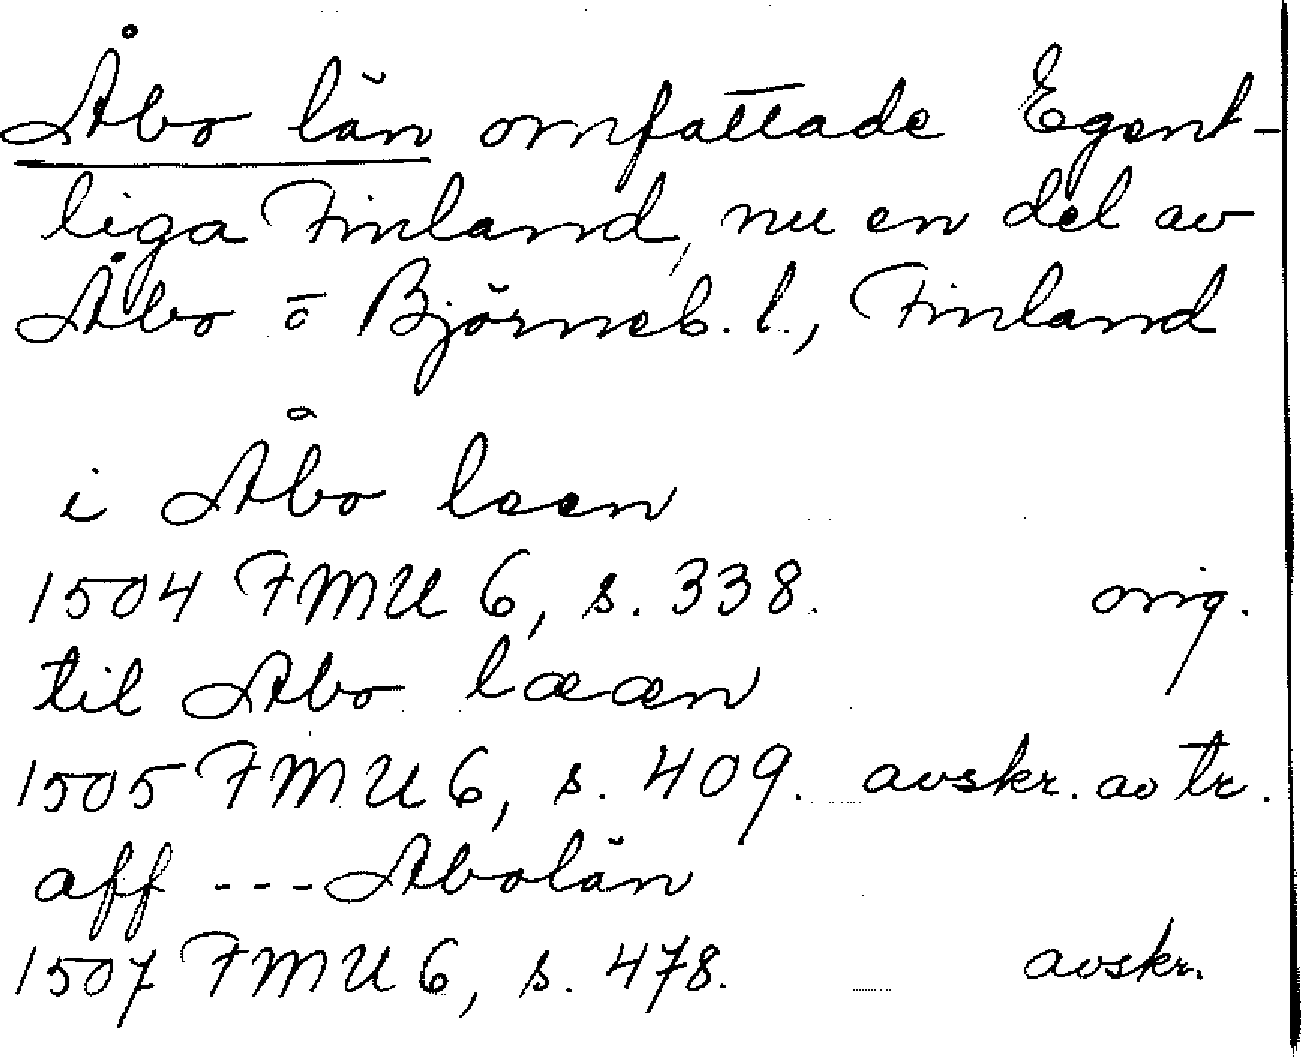 Åbo län omfattade Egent-
liga Finland, nu en del av
Åbo o Björneb. l., Finland
i Åbo leen
1504 FMU 6, s. 338. orig.
til Abo lææn
1505 FMU 6, s. 409. avskr. av tr.
aff --- Abolän
1507 FMU 6, s. 478. avskr.